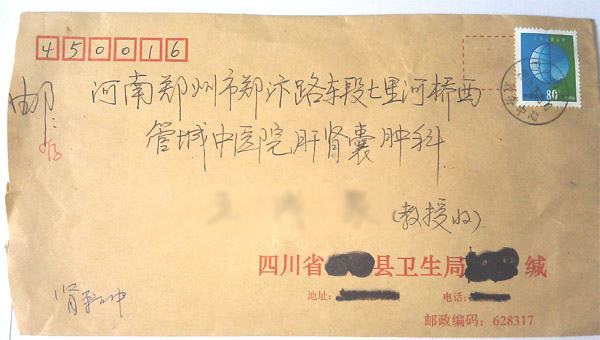 450016
80
河南郑州市郑汴路东段七里河桥西
管城中医院肝肾囊肿科
(教授收)
四川省 县卫生局 缄
地址:
电话:
邮政编码: 628317